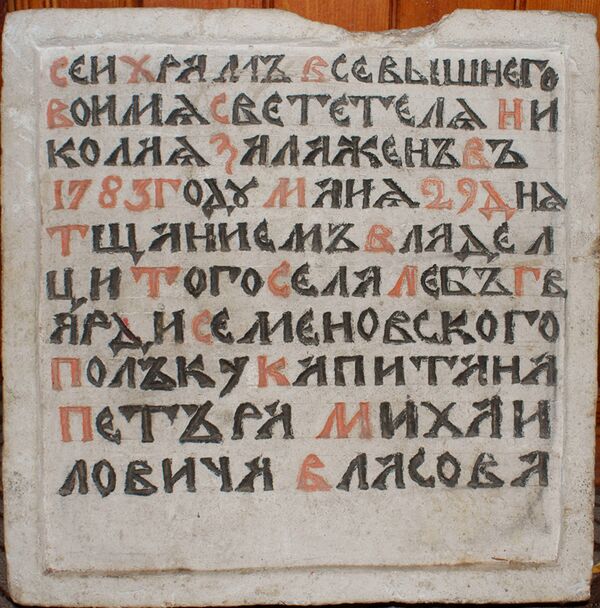 СЕИ ХРАМЪ ВСЕВЫШНЕГО
ВОИМѦ СВЕТЕТЕЛѦ НИ
КОЛАѦ ЗАЛАЖЕНЪ ВЪ
1783 ГОДУ МАИѦ 29 ДНѦ
ТЩАНИЕМЪ ВЛАДЕЛ
ЦИ ТОГО СЕЛА ЛЕБЪ ГВ
АРДИ СЕМЕНОВСКОГО
ПОЛЪКУ КАПИТАНА
ПЕТЪРА МИХАИ
ЛОВИЧА ВЛАСОВА